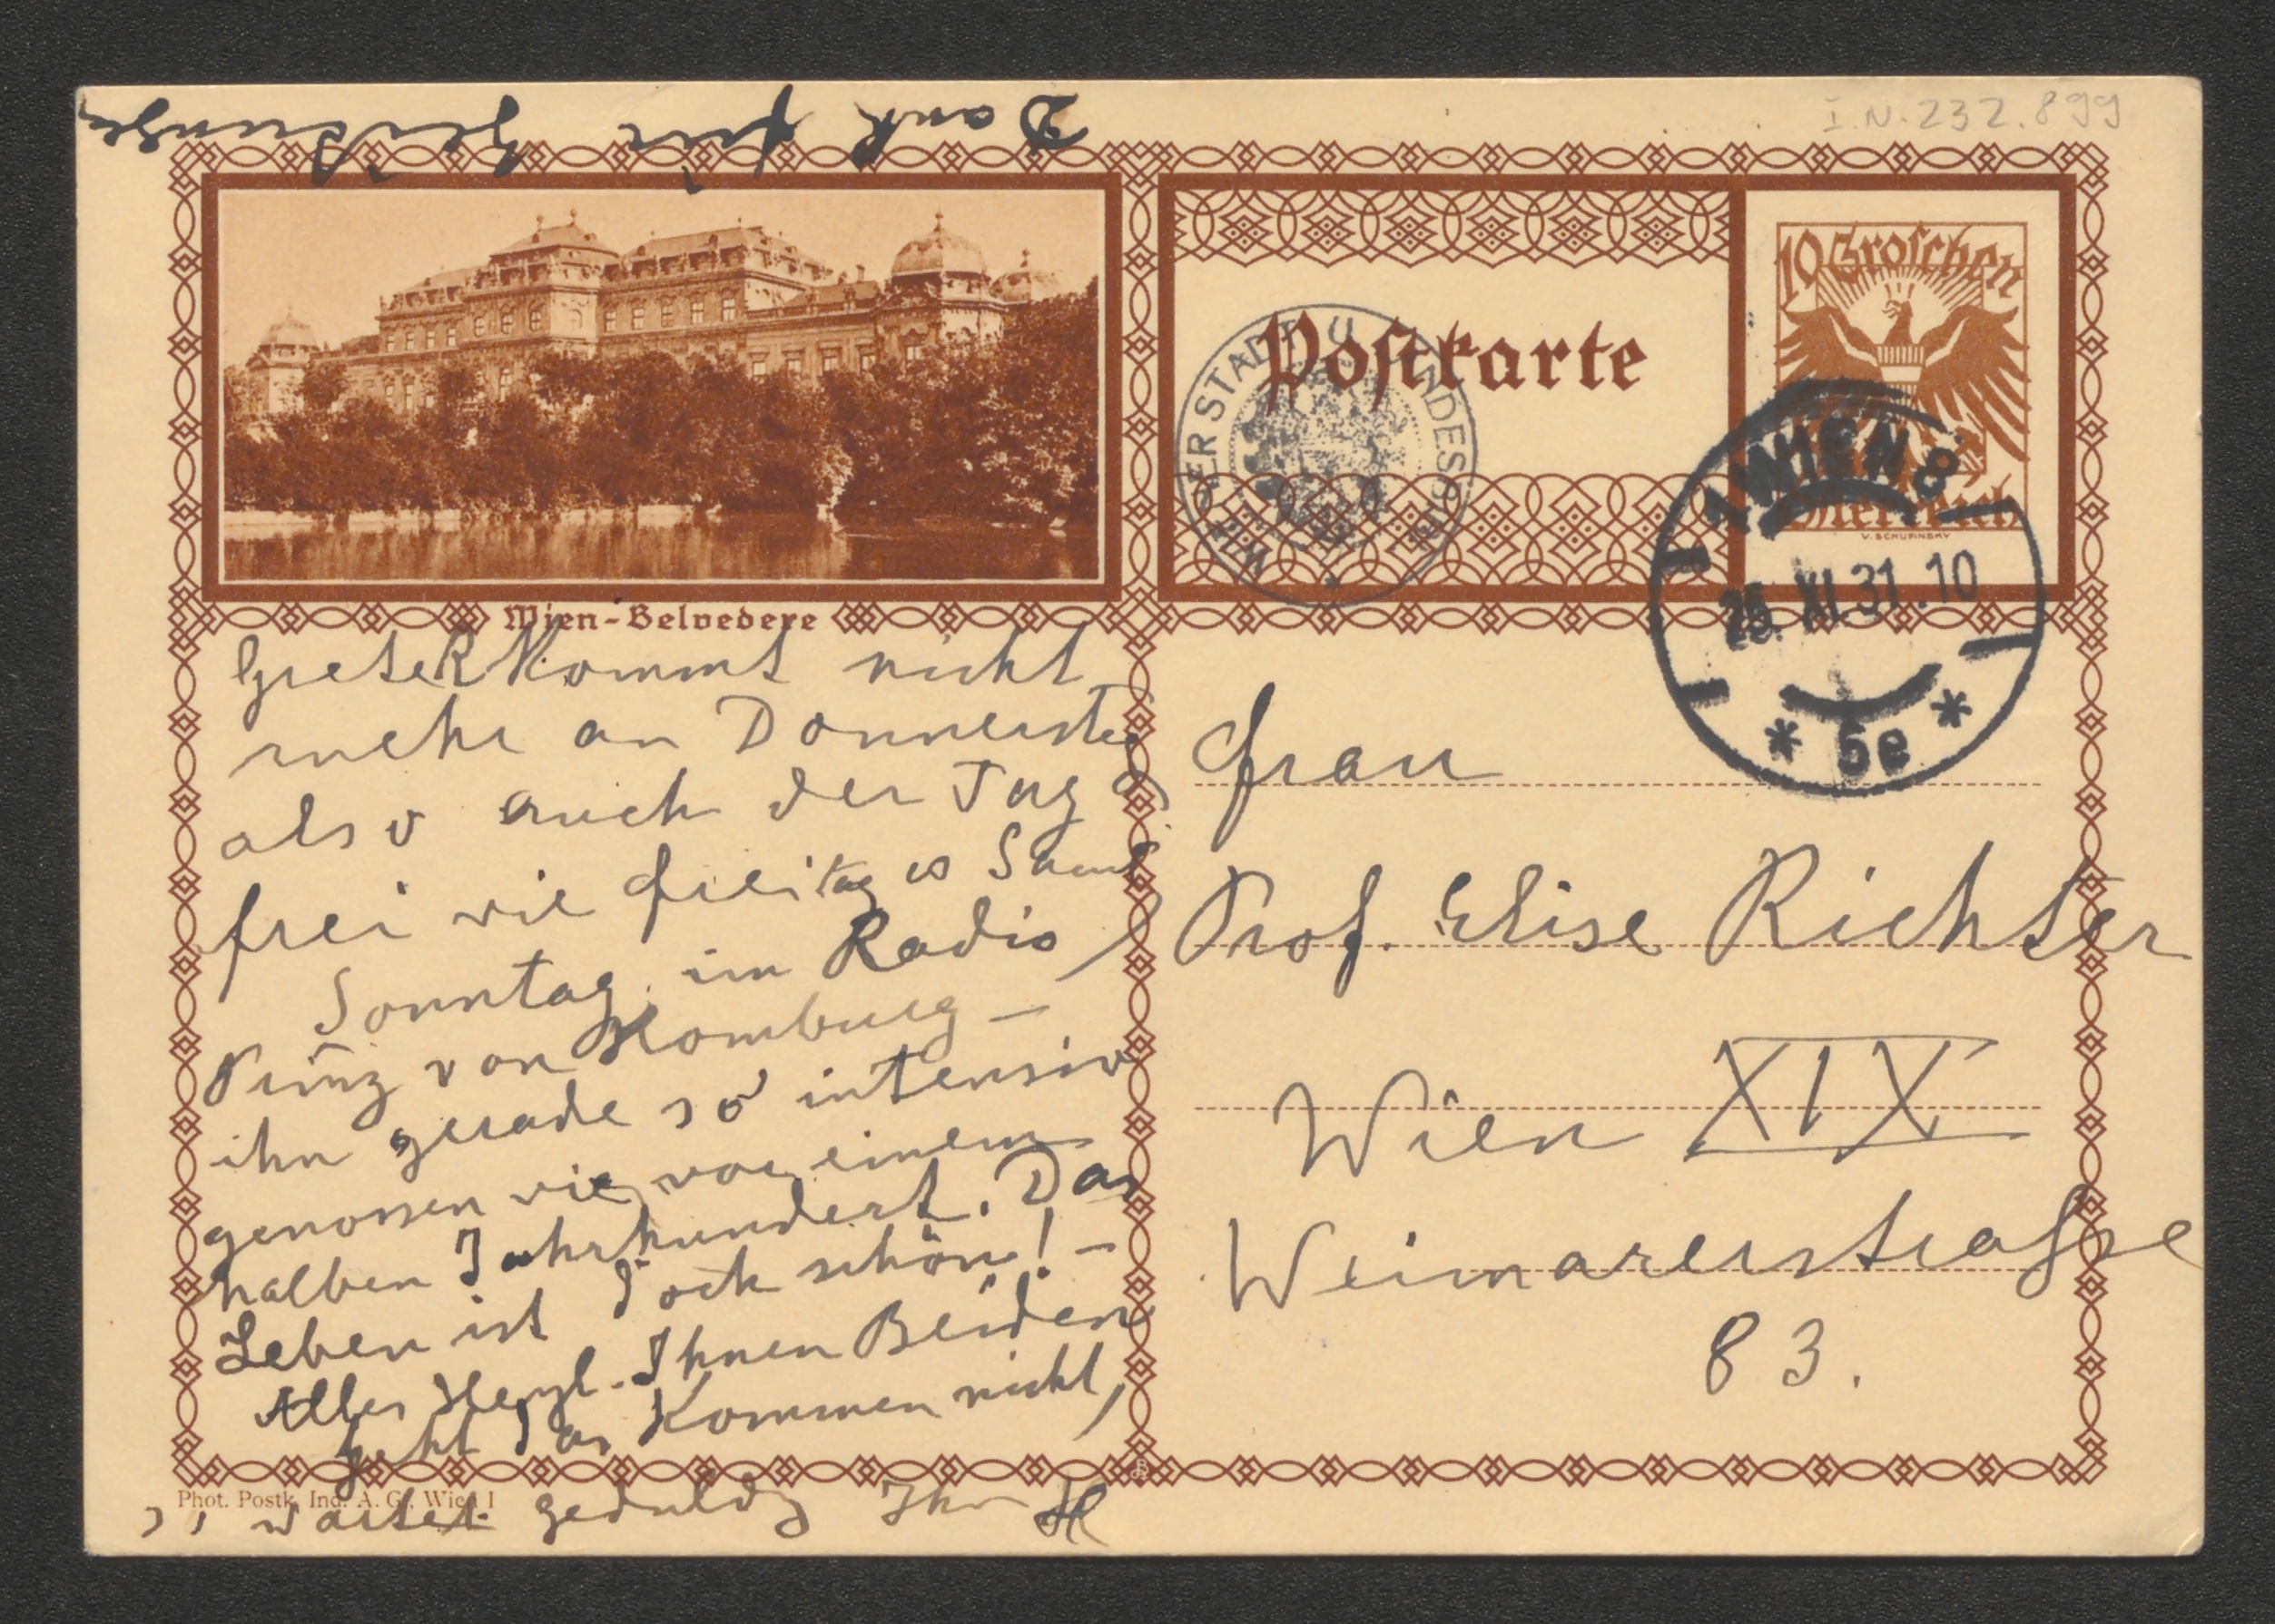 Dank für Zeitungen
I. N. 232.899
10 Groschen
Österreich
V. SCHUFINSKY
Postkarte
WIENER STADT U. LANDESBIB
1 WIEN 8
25. XI. 31. 10
* 5e *
Wien-Belvedere
kommt nicht
mehr an Donnerstag
also auch der Tag
frei wie Freitag
Sonntag im Radio
Prinz von Homburg –
ihn gerade so intensiv
genossen wie vor einem
halben Jahrhundert. Das
Leben ist doch schön! –
Alles Herzl. Ihnen Beiden
Geht das Kommen nicht,
so wartet geduldig Ihr
Phot. Postk. Ind. A. G., Wien I
Frau
Prof. Elise Richter
Wien XIX
Weimarerstraße
83.